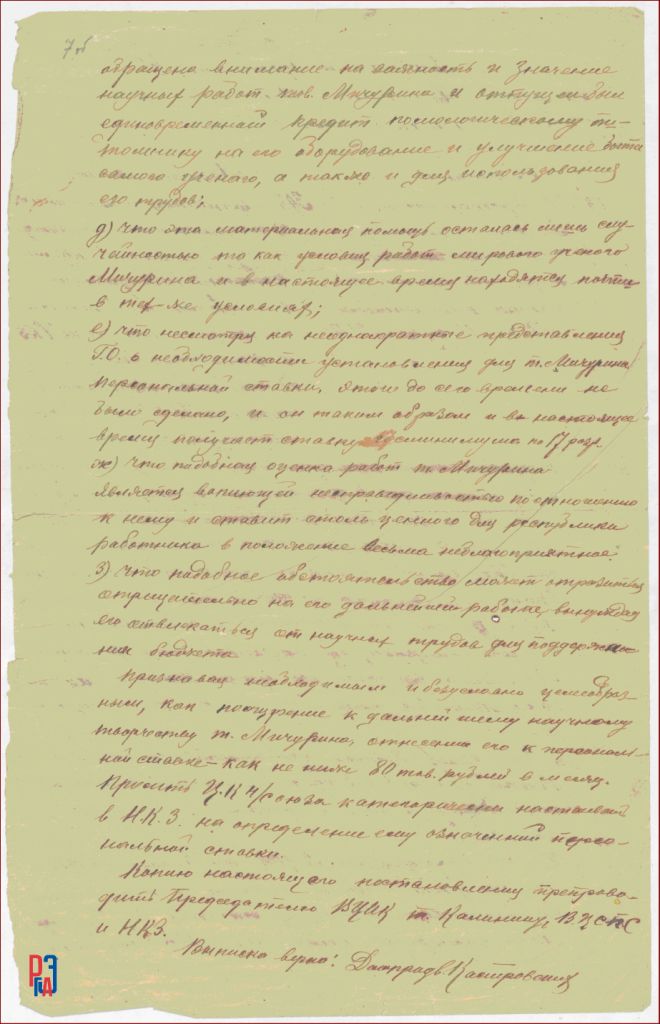 7об
обращено внимание на важность и значение
научных работ тов. Мичурина и отпущен был
единовременный кредит помологическому пи-
томнику на его оборудование и улучшение быта
самого ученого, а также и для использования
его трудов;
д) что эта материальная помощь осталась лишь слу-
чайностью то как условия работ мирового ученого
Мичурина и в настоящее время находятся почти
в тех-же условиях;
е) что несмотря на неоднократные представления
Г.О. о необходимости установления для т. Мичурина
персональной ставки, этого до сего времени не
было сделано, и он таким образом и в настоящее
время получает ставку госминимума по 17 разр.
ж) что подобная оценка работ т. Мичурина
является вопиющей несправедливостью по отношению
к нему и ставит столь ценного для республики
работника в положение весьма неблагоприятное.
з) что подобное обстоятельство может отразиться
отрицательно на его дальнейшей работе, вынуждая
его отвлекаться от научных трудов для поддержа-
ния бюджета
Признавая необходимым и безусловно целесообраз-
ным, как поощрение к дальнейшему научному
творчеству т. Мичурина, отнесение его к персональ-
ной ставке – как не ниже 80 тов. рублей в месяц.
Просить Ц.К. Ч/союза категорически настаивать
в Н.К.З. на определение ему означенной персо-
нальной ставки.
Копию настоящего постановления препрово-
дить Председателю ВЦИК т. Калинину, ВЦСПС
и НКЗ.
Выписка верна:
РГАЭ